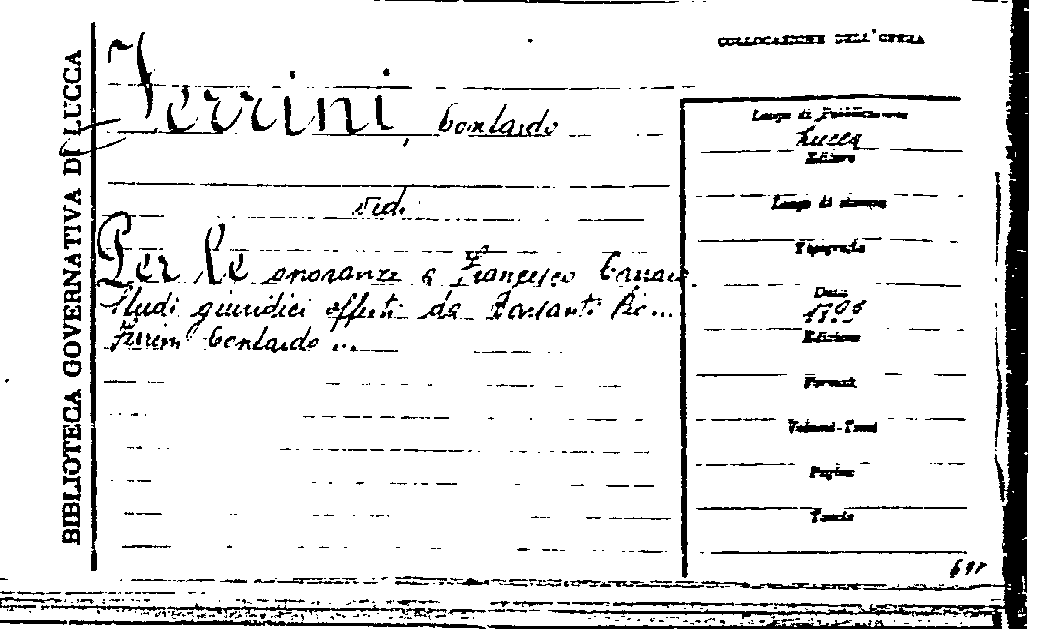 BIBLIOTECA GOVERNATIVA DI LUCCA
COLLOCAZIONE DELL'OPERA
Ferrini, Contardo
vedi
Per le onoranze a Francesco Carrara.
Studi giuridici offerti da
Ferrini Contardo ...
Luogo di Pubblicazione
Lucca
Editore
Luogo di stampa
Tipografia
Data
Edizione
Formato
Volumi-Tomi
Pagine
Tavole